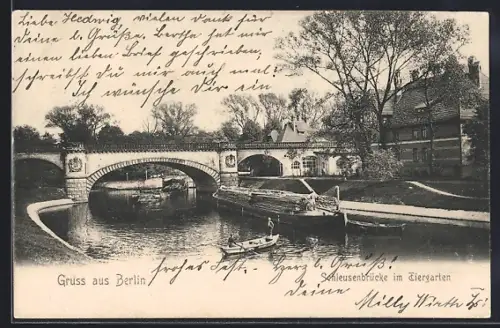 Liebe Hedwig, vielen Dank für
Deine l. Grüße. Bertha hat mir
einen lieben Brief geschrieben;
schreibst du mir auch mal?
Ich wünsche Dir ein
Gruss aus Berlin
frohes Fest. Herzl. Grüße!
Schleusenbrücke im Tiergarten
Deine
Milly Wirth